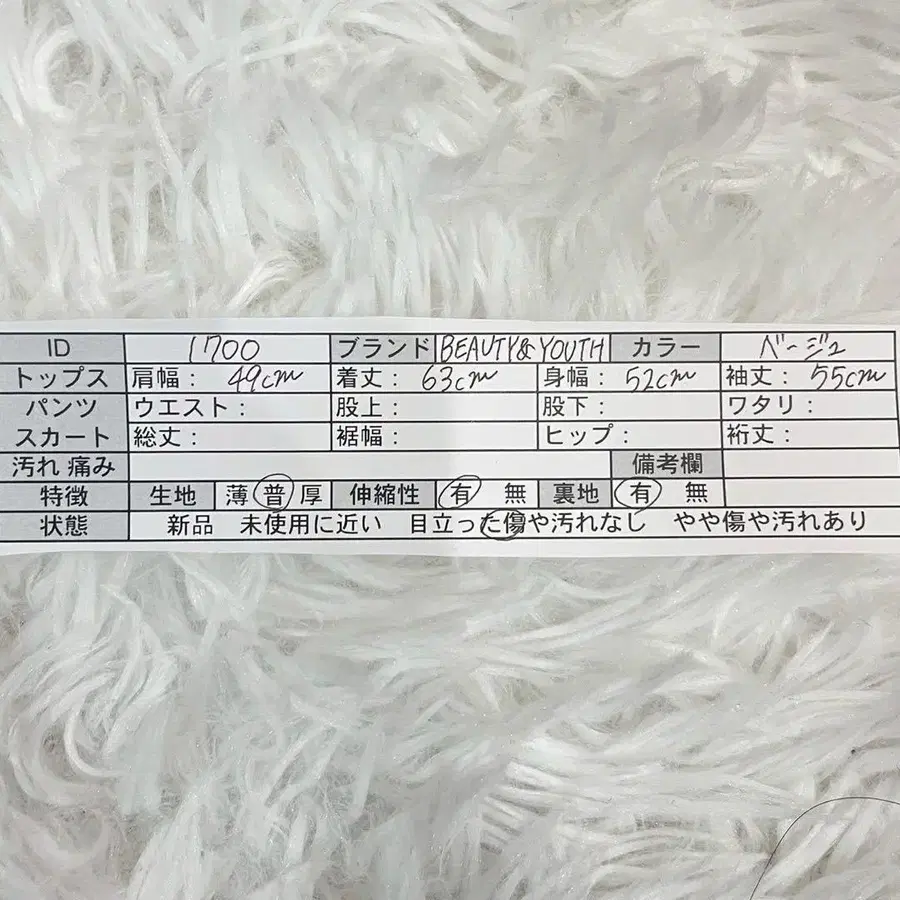 ID 1700 ブランド BEAUTY&YOUTH カラー ベージュ
トップス 肩幅： 49cm 着丈： 63cm 身幅： 52cm 袖丈： 55cm
パンツ ウエスト： 股上： 股下： ワタリ：
スカート 総丈： 裾幅： ヒップ： 裄丈：
汚れ 痛み 備考欄
特徴 生地 薄 普 厚 伸縮性 有 無 裏地 有 無
状態 新品 未使用に近い 目立った傷や汚れなし やや傷や汚れあり